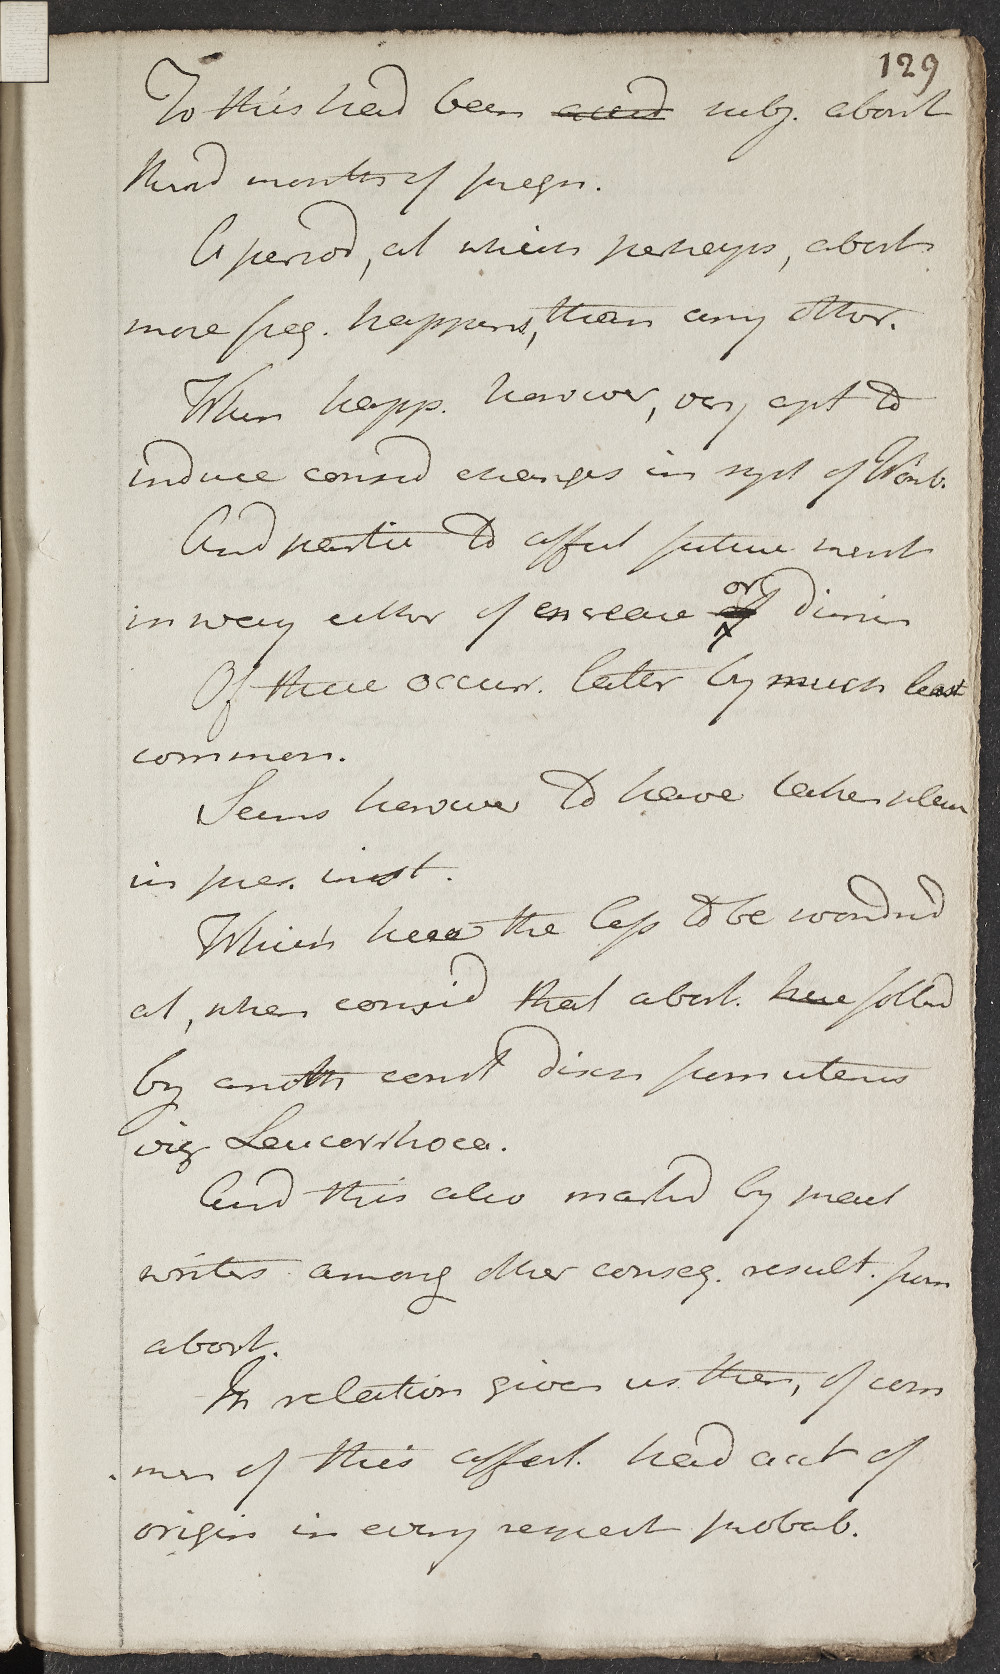 129
To this had been accid subj. about
third month of pregn.
A period, at which perhaps, abort
more freq. happens, than any other.
When happ. however, very apt to
induce consid changes in syst of Womb.
And partic to affect future menst
in way either of encrease or dimin
Of these occurr. latter by much least
common.
Seems however to have taken place
in pres. inst.
Which here the less to be wondred
at, when consid that abort. here follwd
by anoth const disch from uterus
viz Leucorrhoea.
And this also markd by pract
writers among other conseq. result. from
abort.
In relation given us then, of com
men of this affect. had acct of
origin in every respect probab.